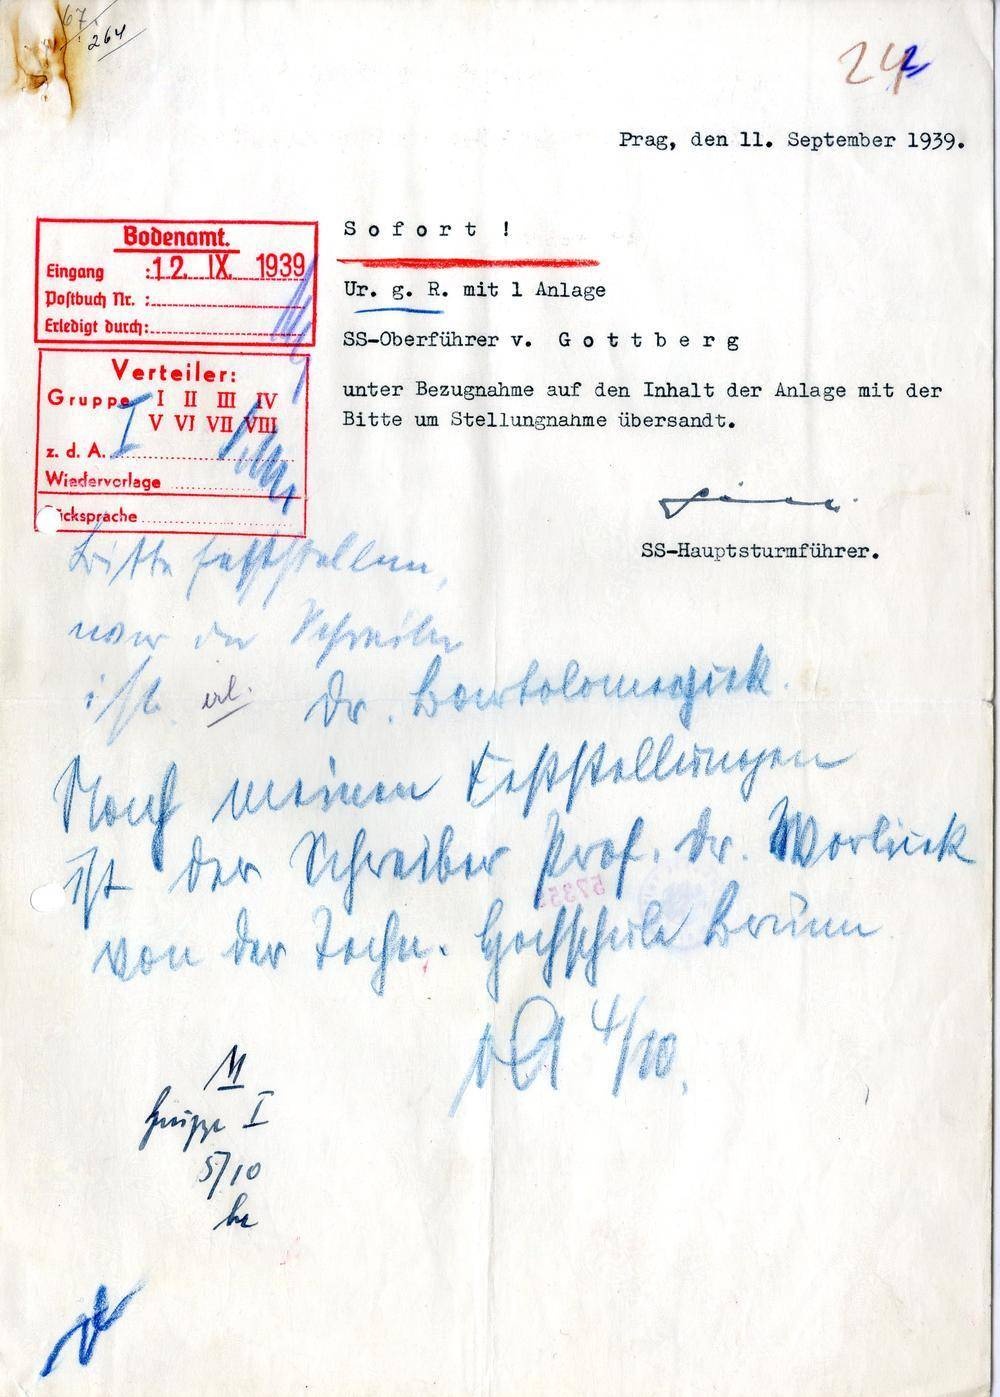 67/264
242
Prag, den 11. September 1939.
Bodenamt.
Eingang :12. IX. 1939
Postbuch Nr. :
Erledigt durch:
Verteiler:
Gruppe I II III IV
V VI VII VIII
I
z. d. A.
Wiedervorlage
cksprache
Sofort !
Ur. g. R. mit 1 Anlage
SS-Oberführer v. Gottberg
unter Bezugnahme auf den Inhalt der Anlage mit der
Bitte um Stellungnahme übersandt.
SS-Hauptsturmführer.
Bitte feststellen,
wer der Schreiber
ist. erl. Dr.
Nach meinen Feststellungen
ist der Schreiber Prof. Dr. Worlicek
von der Techn. Hochschule Brünn
4/10.
M
Gruppe I
5/10